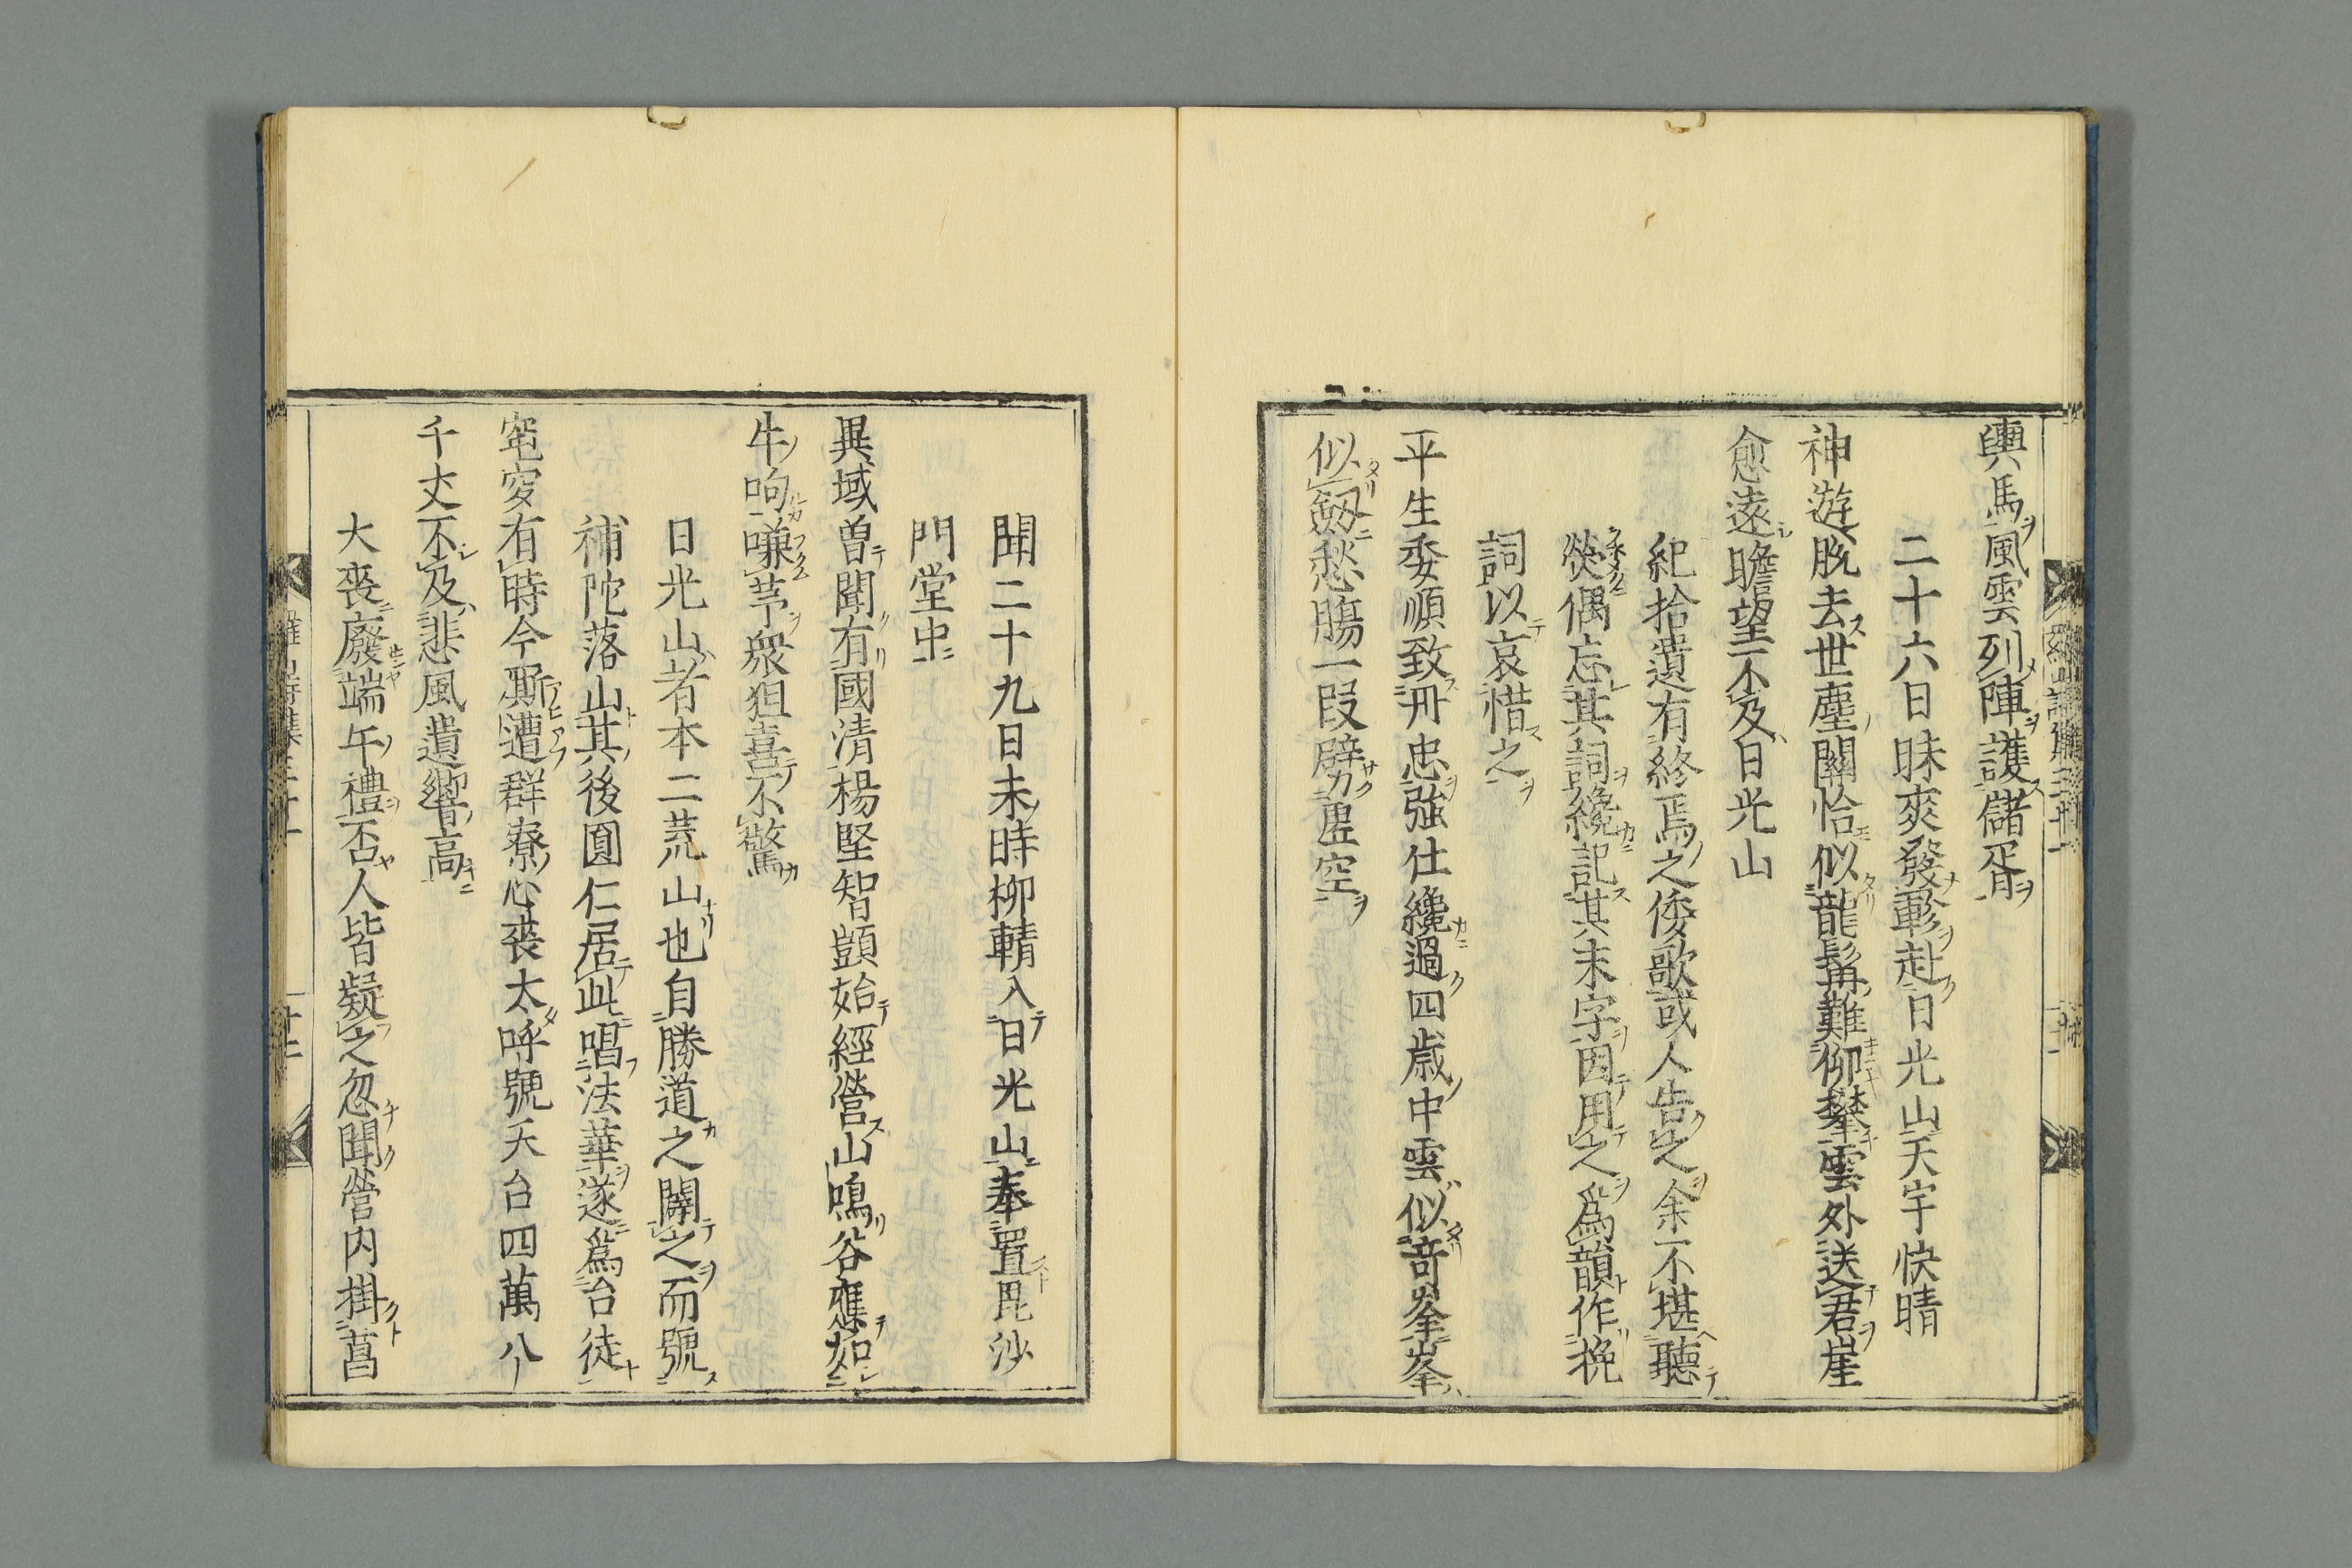 輿馬風雲列陣護儲胥
二十六日昧爽發軫赴日光山天宇快晴
神遊脱去世塵關恰似龍髯難仰攀雲外送君崖
愈遠瞻望不及日光山
紀拾遺有終焉之倭歌或人告之余不堪聽
熒偶忘其詞纔記其末字因用之爲韻作挽
詞以哀惜之
平生委順致丹忠強仕纔過四歳中雲似奇峯峯
似劔愁膓一段劈虚空
聞二十九日未時柳輤入日光山奉置毘沙
門堂中
異域曽聞有國清楊堅智顗始經營山鳴谷應如
牛呴嗛芧衆狙喜不驚
日光山者本二荒山也自勝道之闢之而號
補陀落山其後圓仁居此唱法華遂爲台徒
窀穸有時今斯遭群寮心喪太呼號天台四萬八
千丈不及悲風遺響高
大喪廢端午禮否人皆疑之忽聞營内掛菖
羅山詩集三十一